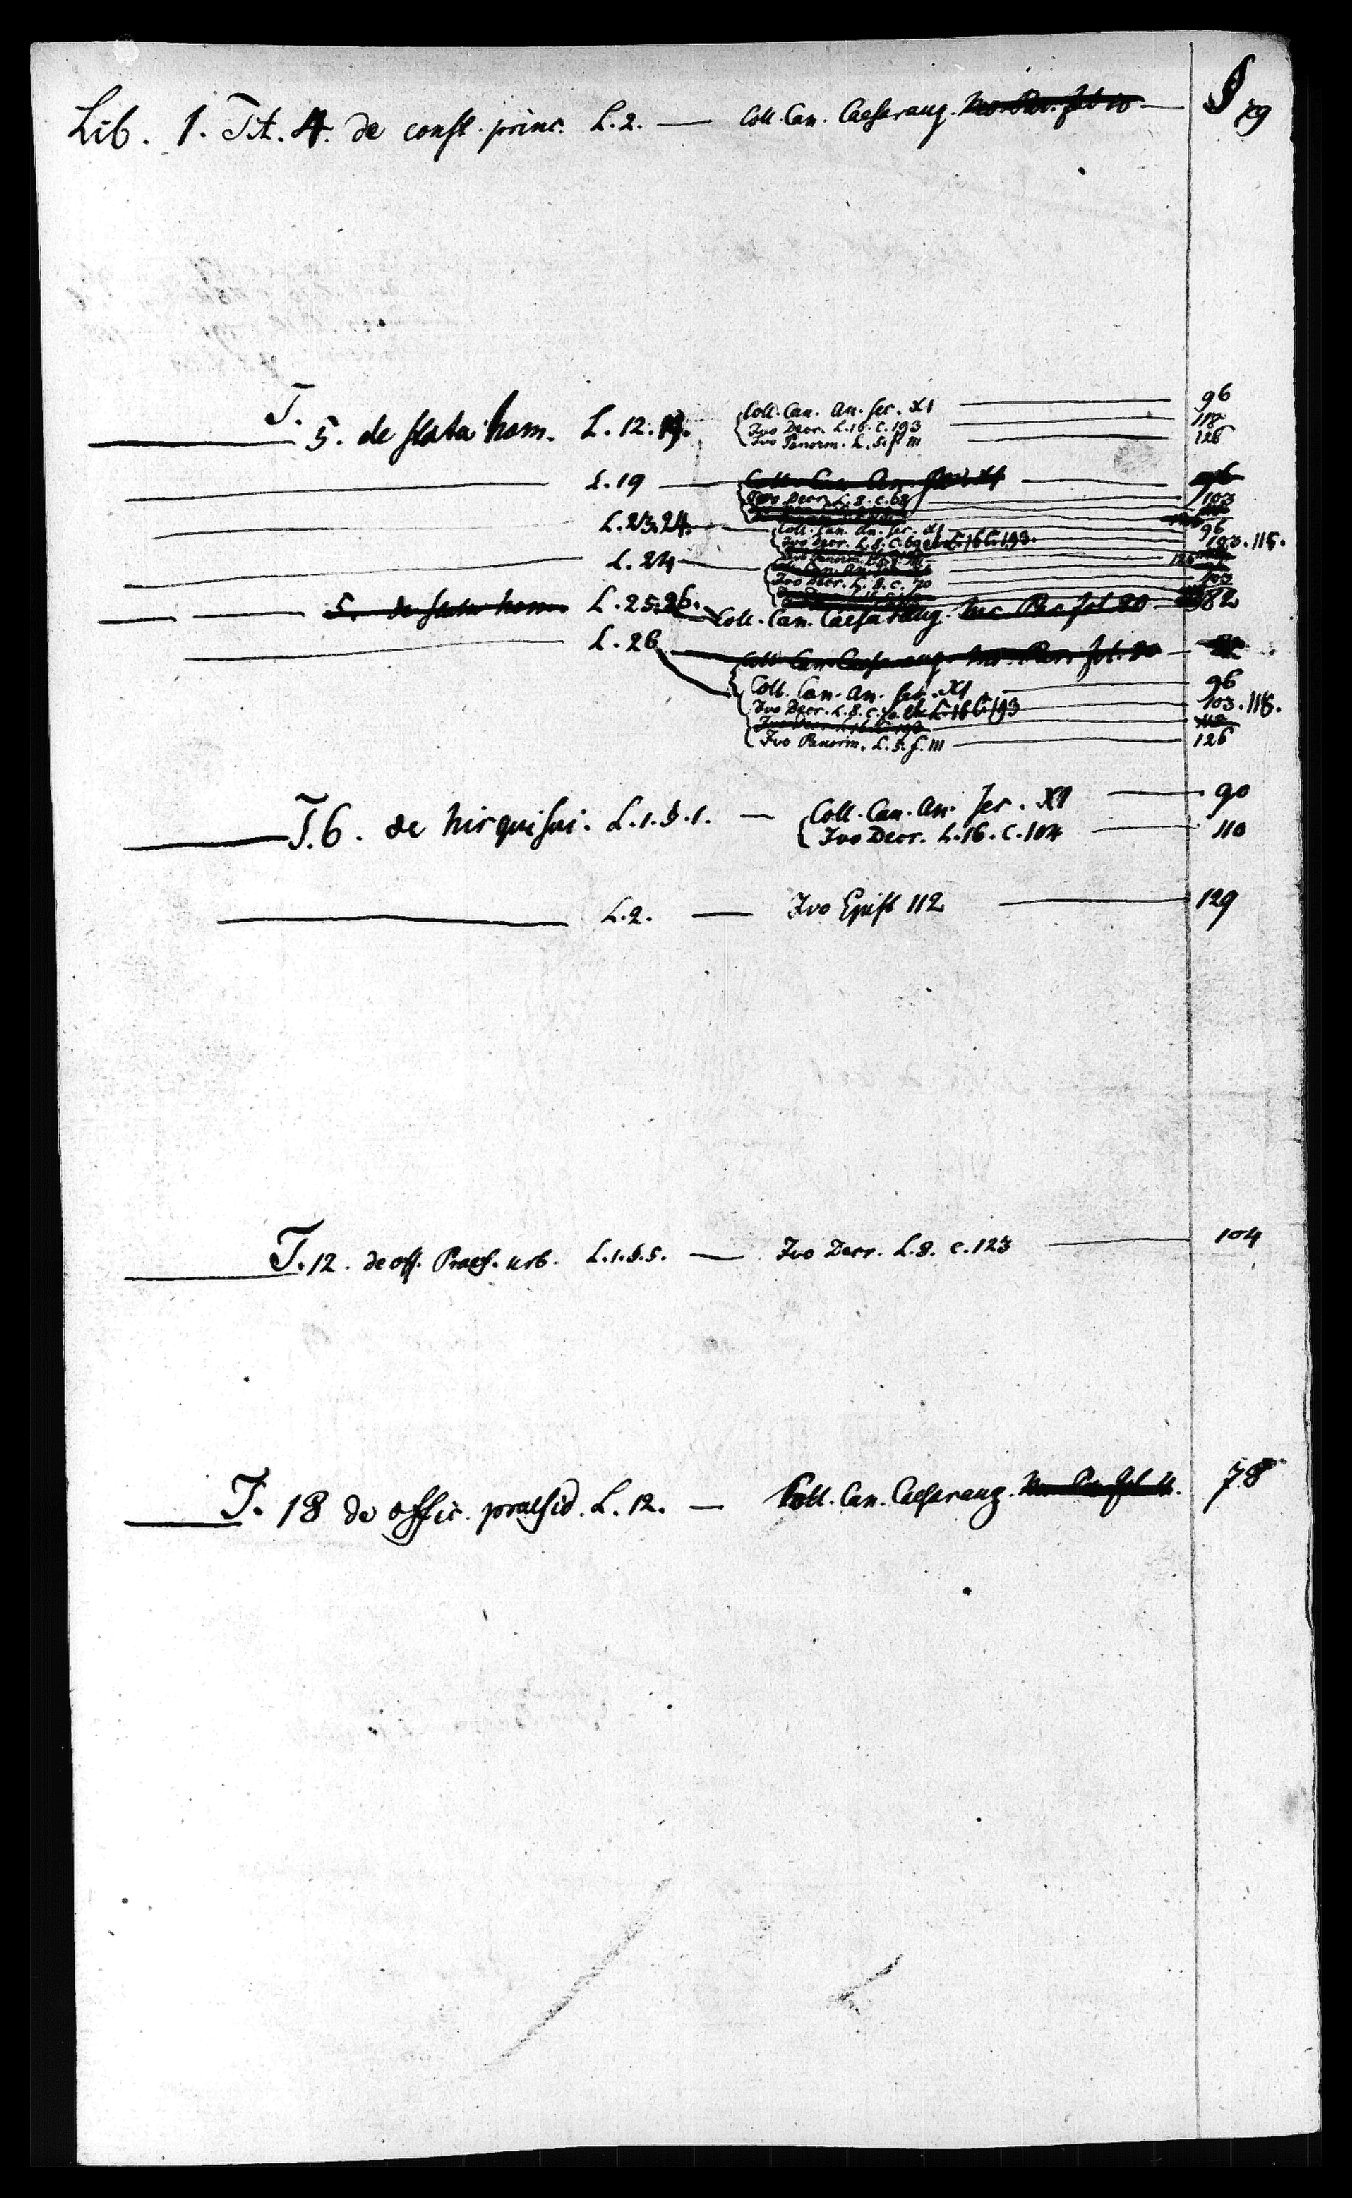 Lib. 1. Tit. 4. de const. princ. L. 2. — Coll. Can. Caesaraug. § 79
T. 5. de statu hom. L. 12. Coll. Can. An. sec. XI — 96
Ivo Decr. L. 16. C. 193 — 118
Ivo Panorm. L. 5. f. 111 — 126
L. 19 — Coll. Can. An. sec. XI — 96
Ivo Decr. L. 8. C. 68 — 103
L. 23. 24. — Coll. Can. An. sec. XI — 96
Ivo Decr. L. 8. C. 69 L. 16 C. 193. — 103. 118.
L. 24 —
Ivo Decr. L. 8. C. 70 — 103
5. de statu hom. L. 25. 26. Coll. Can. Caesaraug. Inc. Par. fol. 20 — 82
L. 26 Coll. Can. Caesaraug. Inc. Par. fol. 20
Coll. Can. An. sec. XI — 96
Ivo Decr. L. 8. C. 70 L. 16 C. 193 — 103. 118.
Ivo Decr. L. 16. C. 193 — 118
Ivo Panorm. L. 5. f. 111 — 126
T. 6. de his qui sui. L. 1. §. 1. — Coll. Can. An. sec. XI — 90
Ivo Decr. L. 16. C. 104 — 110
L. 2. — Ivo Epist 112 — 129
T. 12. de off. Praef. urb. L. 1. §. 5. — Ivo Decr. L. 8. C. 123 — 104
T. 18 de offic. praesid. L. 12. — Coll. Can. Caesaraug. 78